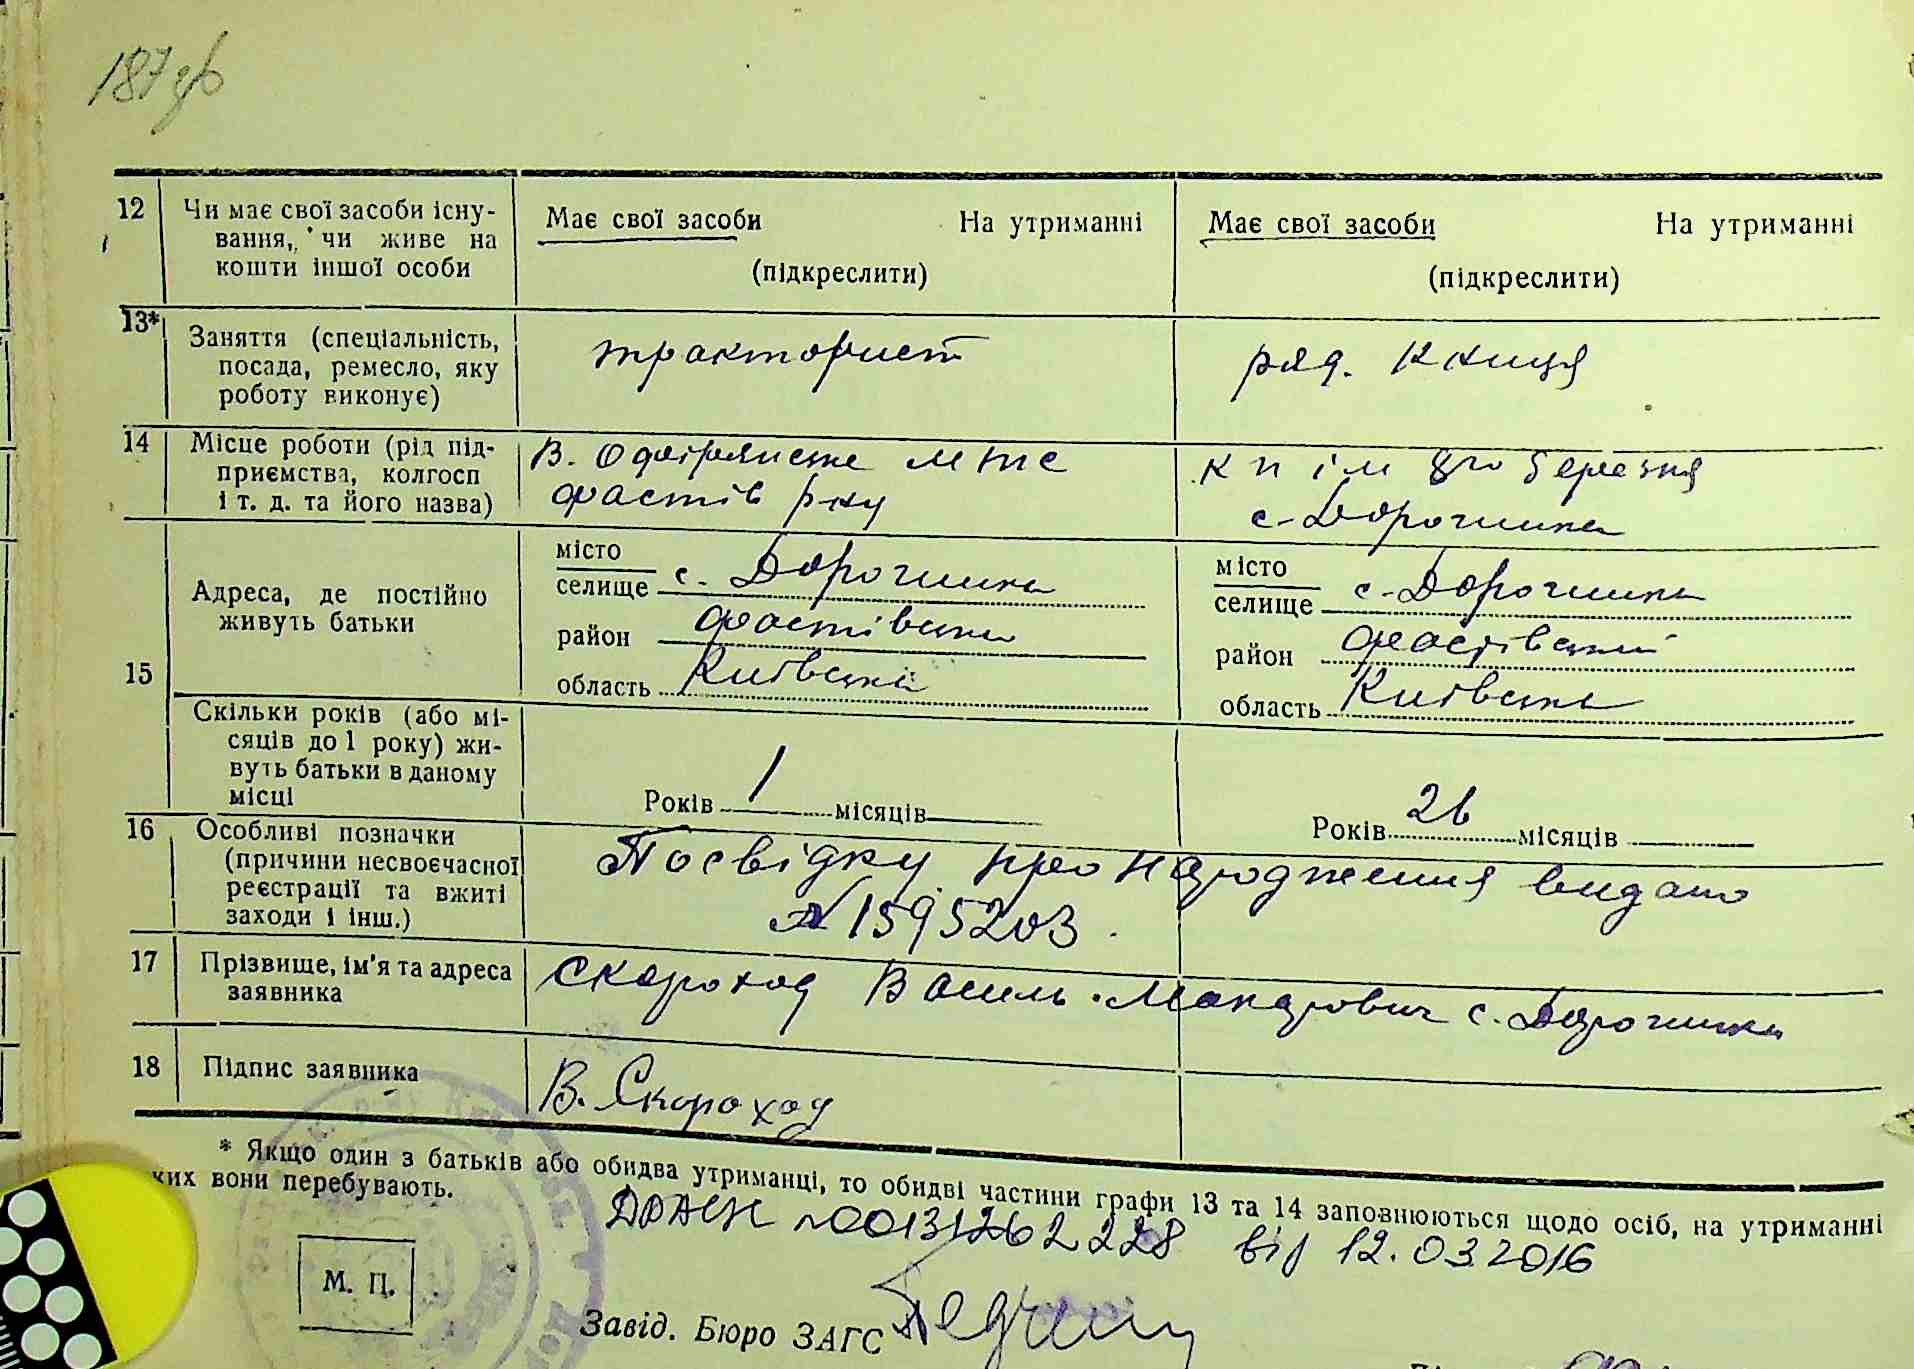 187
12 Чи має свої засоби існу- Має свої засоби На утриманні Має свої засоби На утриманні
вання, чи живе на
кошти іншої особи (підкреслити) (підкреслити)
13* Заняття (спеціальність, тракторист ряд. к-ниця
посада, ремесло, яку
роботу виконує)
14 Місце роботи (рід під- В. МТС к п ім 8го березня
приємства, колгосп фастів р-ну с. Дорогинка
і т. д. та його назва)
15 Адреса, де постійно місто місто
живуть батьки селище с. Дорогинка селище с. Дорогинка
район фастівськи район фастівський
область Київська область Київська
Скільки років (або мі-
сяців до 1 року) жи-
вуть батьки в даному
місці Років 1 місяців Років 26 місяців
16 Особливі позначки Посвідку про народження видано
(причини несвоєчасної
реєстрації та вжиті № 1595203.
заходи і інш.)
17 Прізвище, ім'я та адреса Скороход Василь Макарович с. Дорогинка
заявника
18 Підпис заявника В. Скороход
* Якщо один з батьків або обидва утриманці, то обидві частини графи 13 та 14 заповнюються щодо осіб, на утриманні
ких вони перебувають.
№00131262228 від 12.03.2016
М. П.
Завід. Бюро ЗАГС